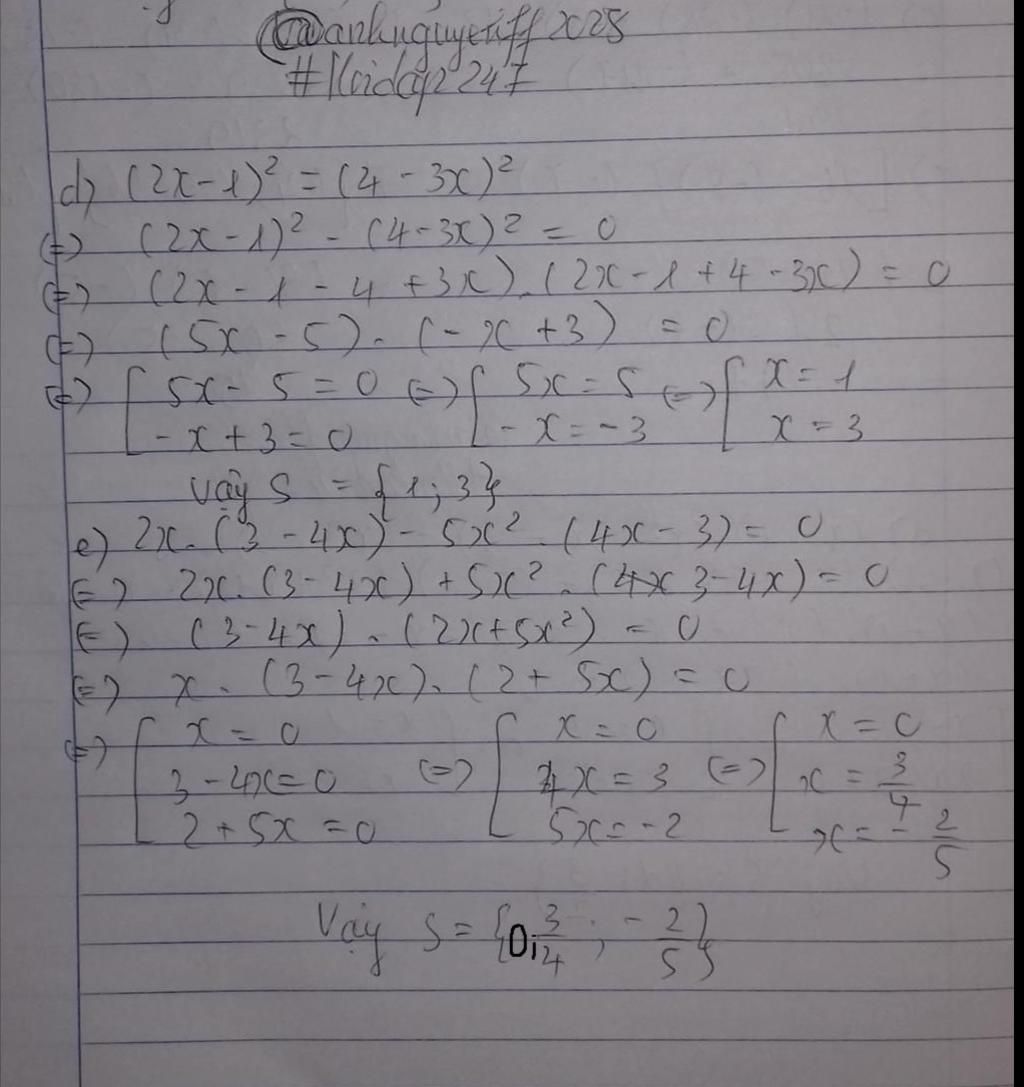 @anhnguyenff2k28
#Hoidap247
d) (2x-1)² = (4-3x)²
(=) (2x-1)² - (4-3x)² = 0
(=) (2x-1-4+3x).(2x-1+4-3x) = 0
(=) (5x-5).(-x+3) = 0
(=) [5x-5=0 (=) [5x=5 (=) [x=1
-x+3=0 -x=-3 x=3
Vậy S = {1;3}
e) 2x.(3-4x)-5x².(4x-3)=0
(=) 2x.(3-4x)+5x².(3-4x)=0
(=) (3-4x).(2x+5x²)=0
(=) x.(3-4x).(2+5x)=0
(=) [x=0 [x=0 [x=0
3-4x=0 (=) 4x=3 (=) x=3/4
2+5x=0 5x=-2 x=-2/5
Vậy S={0;3/4;-2/5}